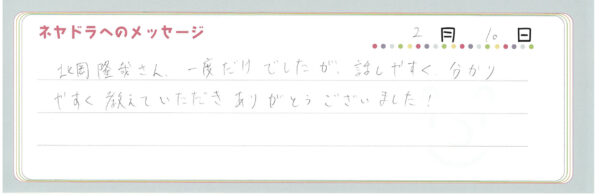 ネヤドラへのメッセージ
2月10日
北岡隆哉さん、一度だけでしたが、話しやすく、分かり
やすく教えていただきありがとうございました!